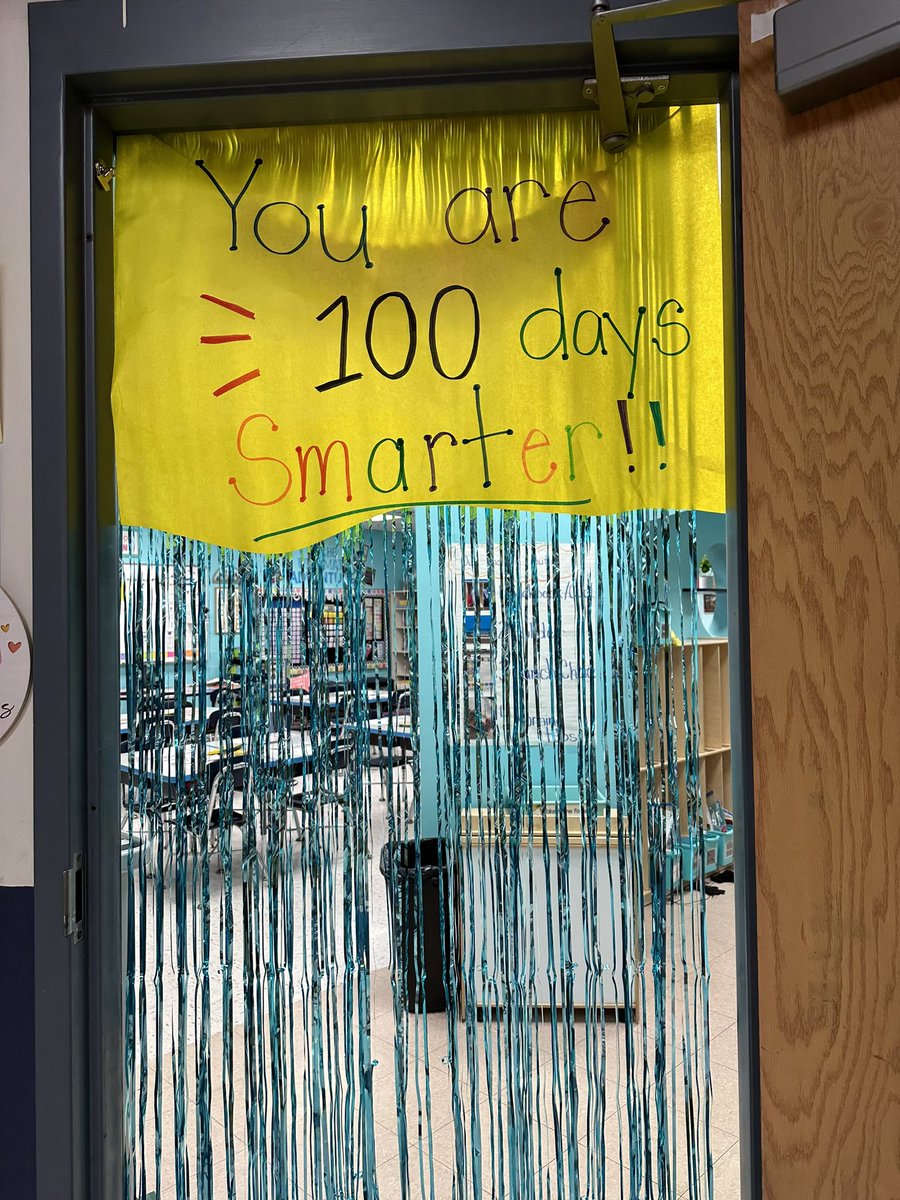 You are
100 days
Smarter!!